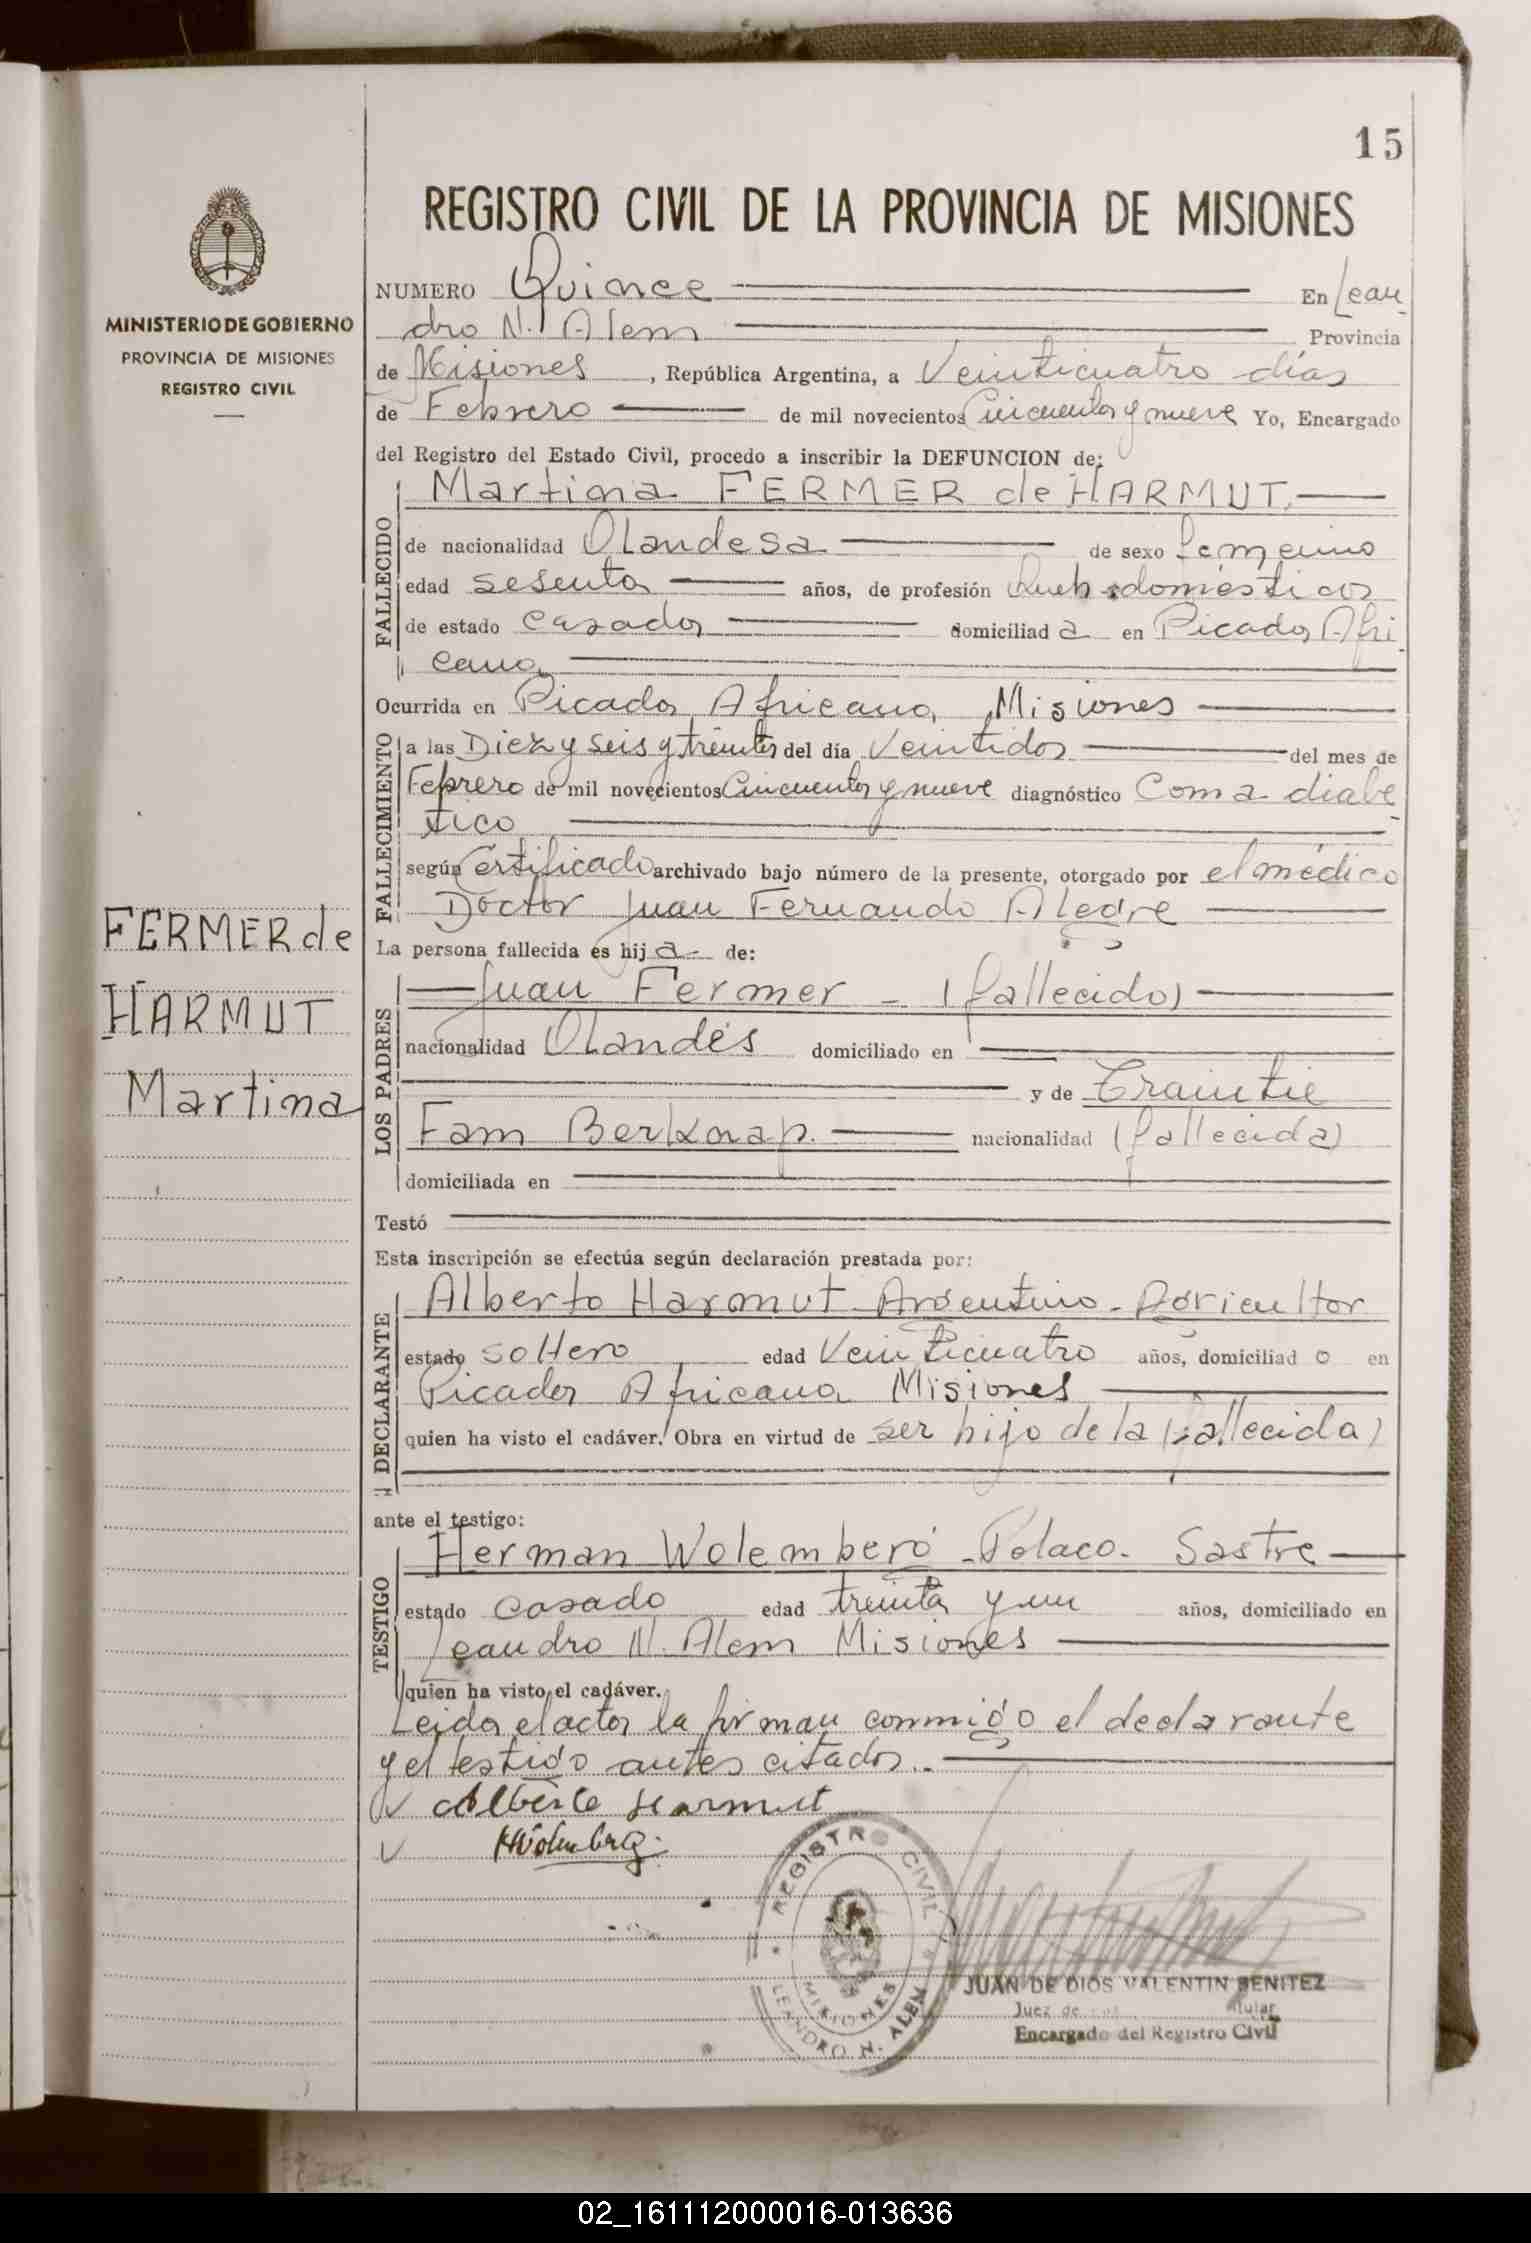 15
REGISTRO CIVIL DE LA PROVINCIA DE MISIONES
MINISTERIO DE GOBIERNO
PROVINCIA DE MISIONES
REGISTRO CIVIL
NUMERO Quince En Lean
dro N. Alem Provincia
de Misiones , República Argentina, a Veinticuatro días
de Febrero de mil novecientos Cincuenta y nueve Yo, Encargado
del Registro del Estado Civil, procedo a inscribir la DEFUNCION de:
FALLECIDO
Martina FERMER de HARMUT.
de nacionalidad Olandesa de sexo femenino
edad sesenta años, de profesión Queh. domésticos
de estado casada domiciliad a en Picada Afri
cana
Ocurrida en Picada Africana, Misiones
FALLECIMIENTO
a las Diez y seis y treinta del día Veintidos del mes de
Febrero de mil novecientos Cincuenta y nueve diagnóstico Coma diabe
tico
según Certificado archivado bajo número de la presente, otorgado por el médico
Doctor Juan Fernando Alegre
FERMER de
HARMUT
Martina
La persona fallecida es hij a de:
LOS PADRES
Juan Fermer - (fallecido)
nacionalidad Olandés domiciliado en
y de Traintie
Fam Berknap. nacionalidad (fallecida)
domiciliada en
Testó
Esta inscripción se efectúa según declaración prestada por:
DECLARANTE
Alberto Harmut Argentino - Agricultor
estado soltero edad Veinticuatro años, domiciliad o en
Picada Africana Misiones
quien ha visto el cadáver. Obra en virtud de ser hijo de la (fallecida)
ante el testigo:
TESTIGO
Herman Wolemberg - Polaco. Sastre
estado casado edad treinta y un años, domiciliado en
Leandro N. Alem Misiones
quien ha visto el cadáver.
Leida el acta la firman conmigo el declarante
y el testigo antes citados.
Alberto Harmut
HWolemberg.
REGISTRO CIVIL
MISIONES
LEANDRO N. ALEM
JUAN DE DIOS VALENTIN BENITEZ
Juez de
Encargado del Registro Civil
02_161112000016-013636